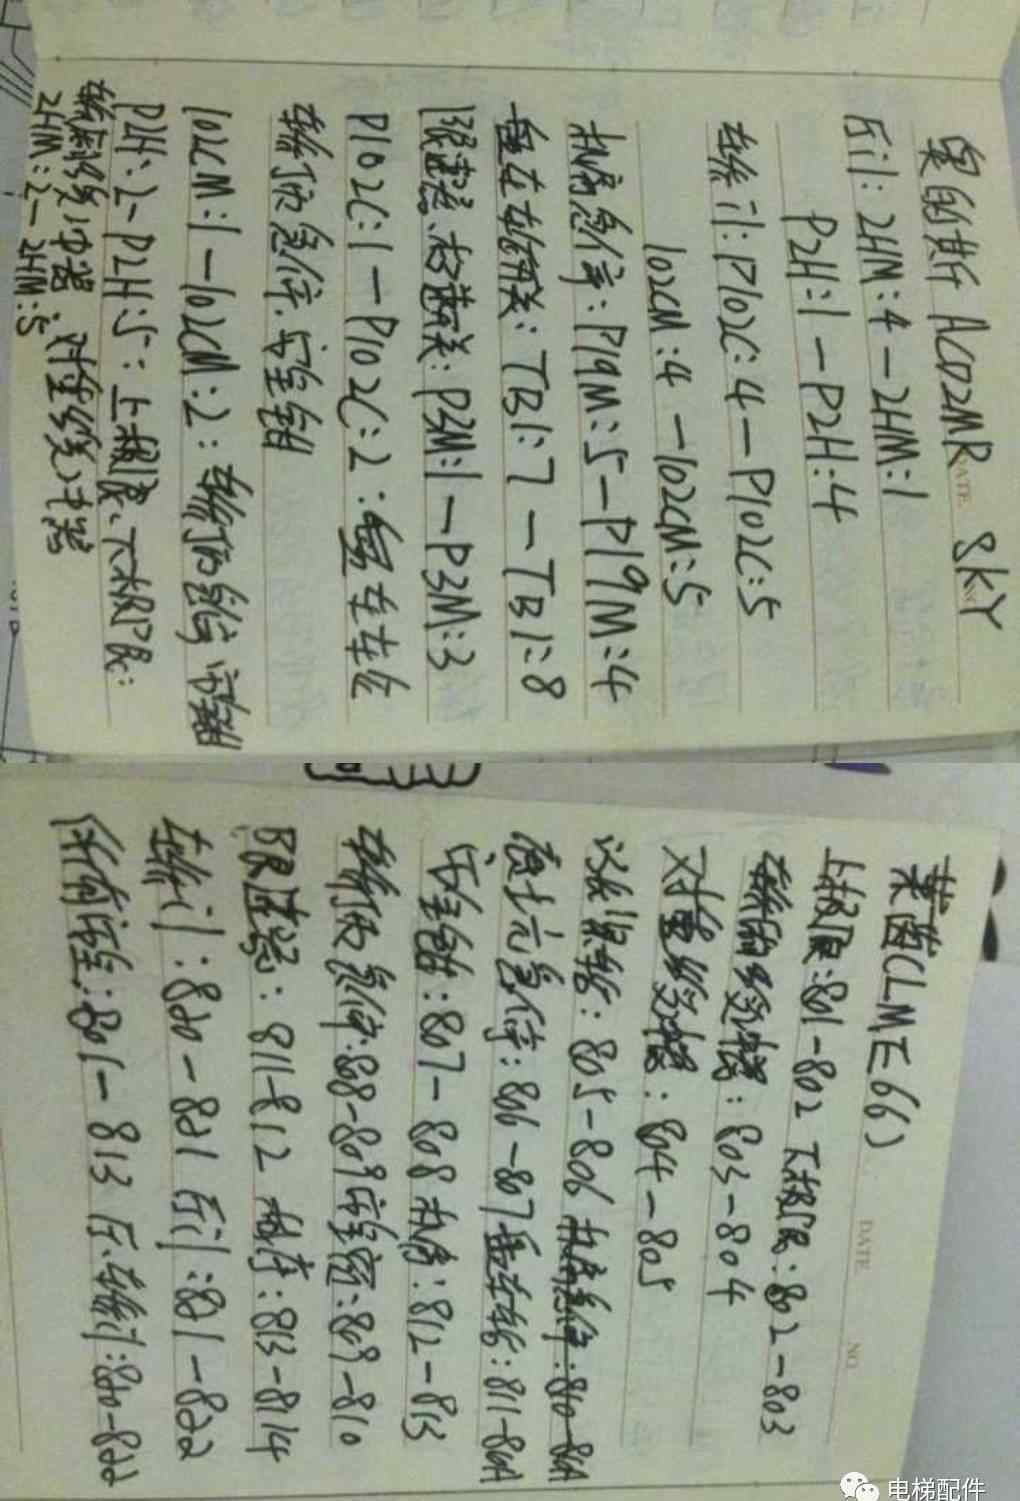 奥的斯 ACD2MR SKY
DATE
厅门: 2HM:4-2HM:1
P2H:1-P2H:4
轿门: P102C:4-P102C:5
102CM:4-102CM:5
机房急停: P19M:5-P19M:4
盘车轮开关: TB1:7-TB1:8
限速器、超速开关: P3M:1-P3M:3
P102C:1-P102C:2:
轿顶急停、安全钳
102CM:1-102CM:2: 轿顶急停 安全钳
P1H:2-P2H:5: 上极限、下极限:
轿厢缓冲器: 对重缓冲器
2HM:2-2HM:5
菱茵(LM E66)
DATE NO
上极限:801-802 下极限:802-803
轿厢缓冲器:803-804
对重缓冲器:804-805
涨紧轮:805-806 机房急停:810-81A
底坑急停:806-807 盘车轮:811-81A
安全钳:807-808 机房:812-813
轿顶急停:808-809 安全窗:809-810
限速器:811-812 相序:813-814
轿门:820-821 厅门:821-822
所有安全:801-813 厅、轿门:820-822
电梯配件